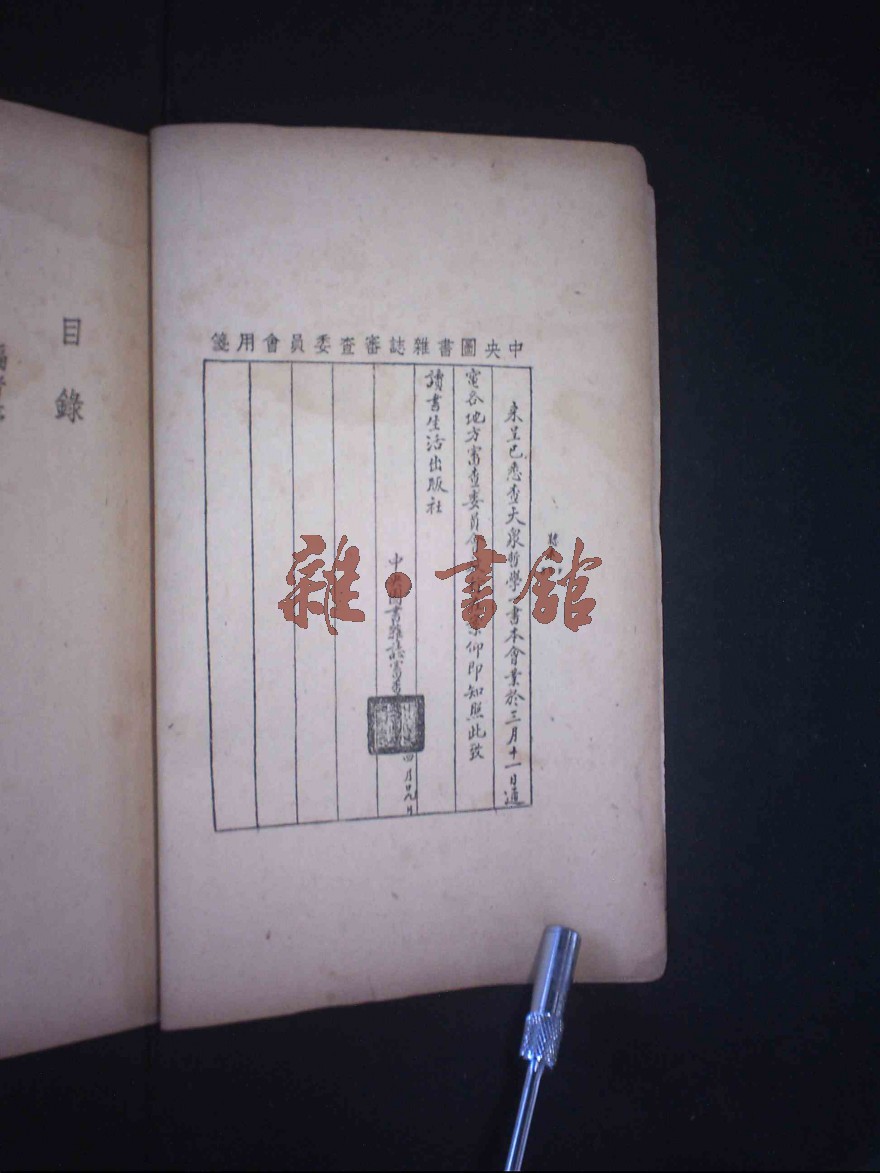 中央圖書雜誌審查委員會用箋
來呈已悉查大衆哲學一書本會業於三月十一日通
電各地方審查委員會 仰即知照此致
讀書生活出版社
中央圖書雜誌審查
四月廿九日
目錄
雜·書館